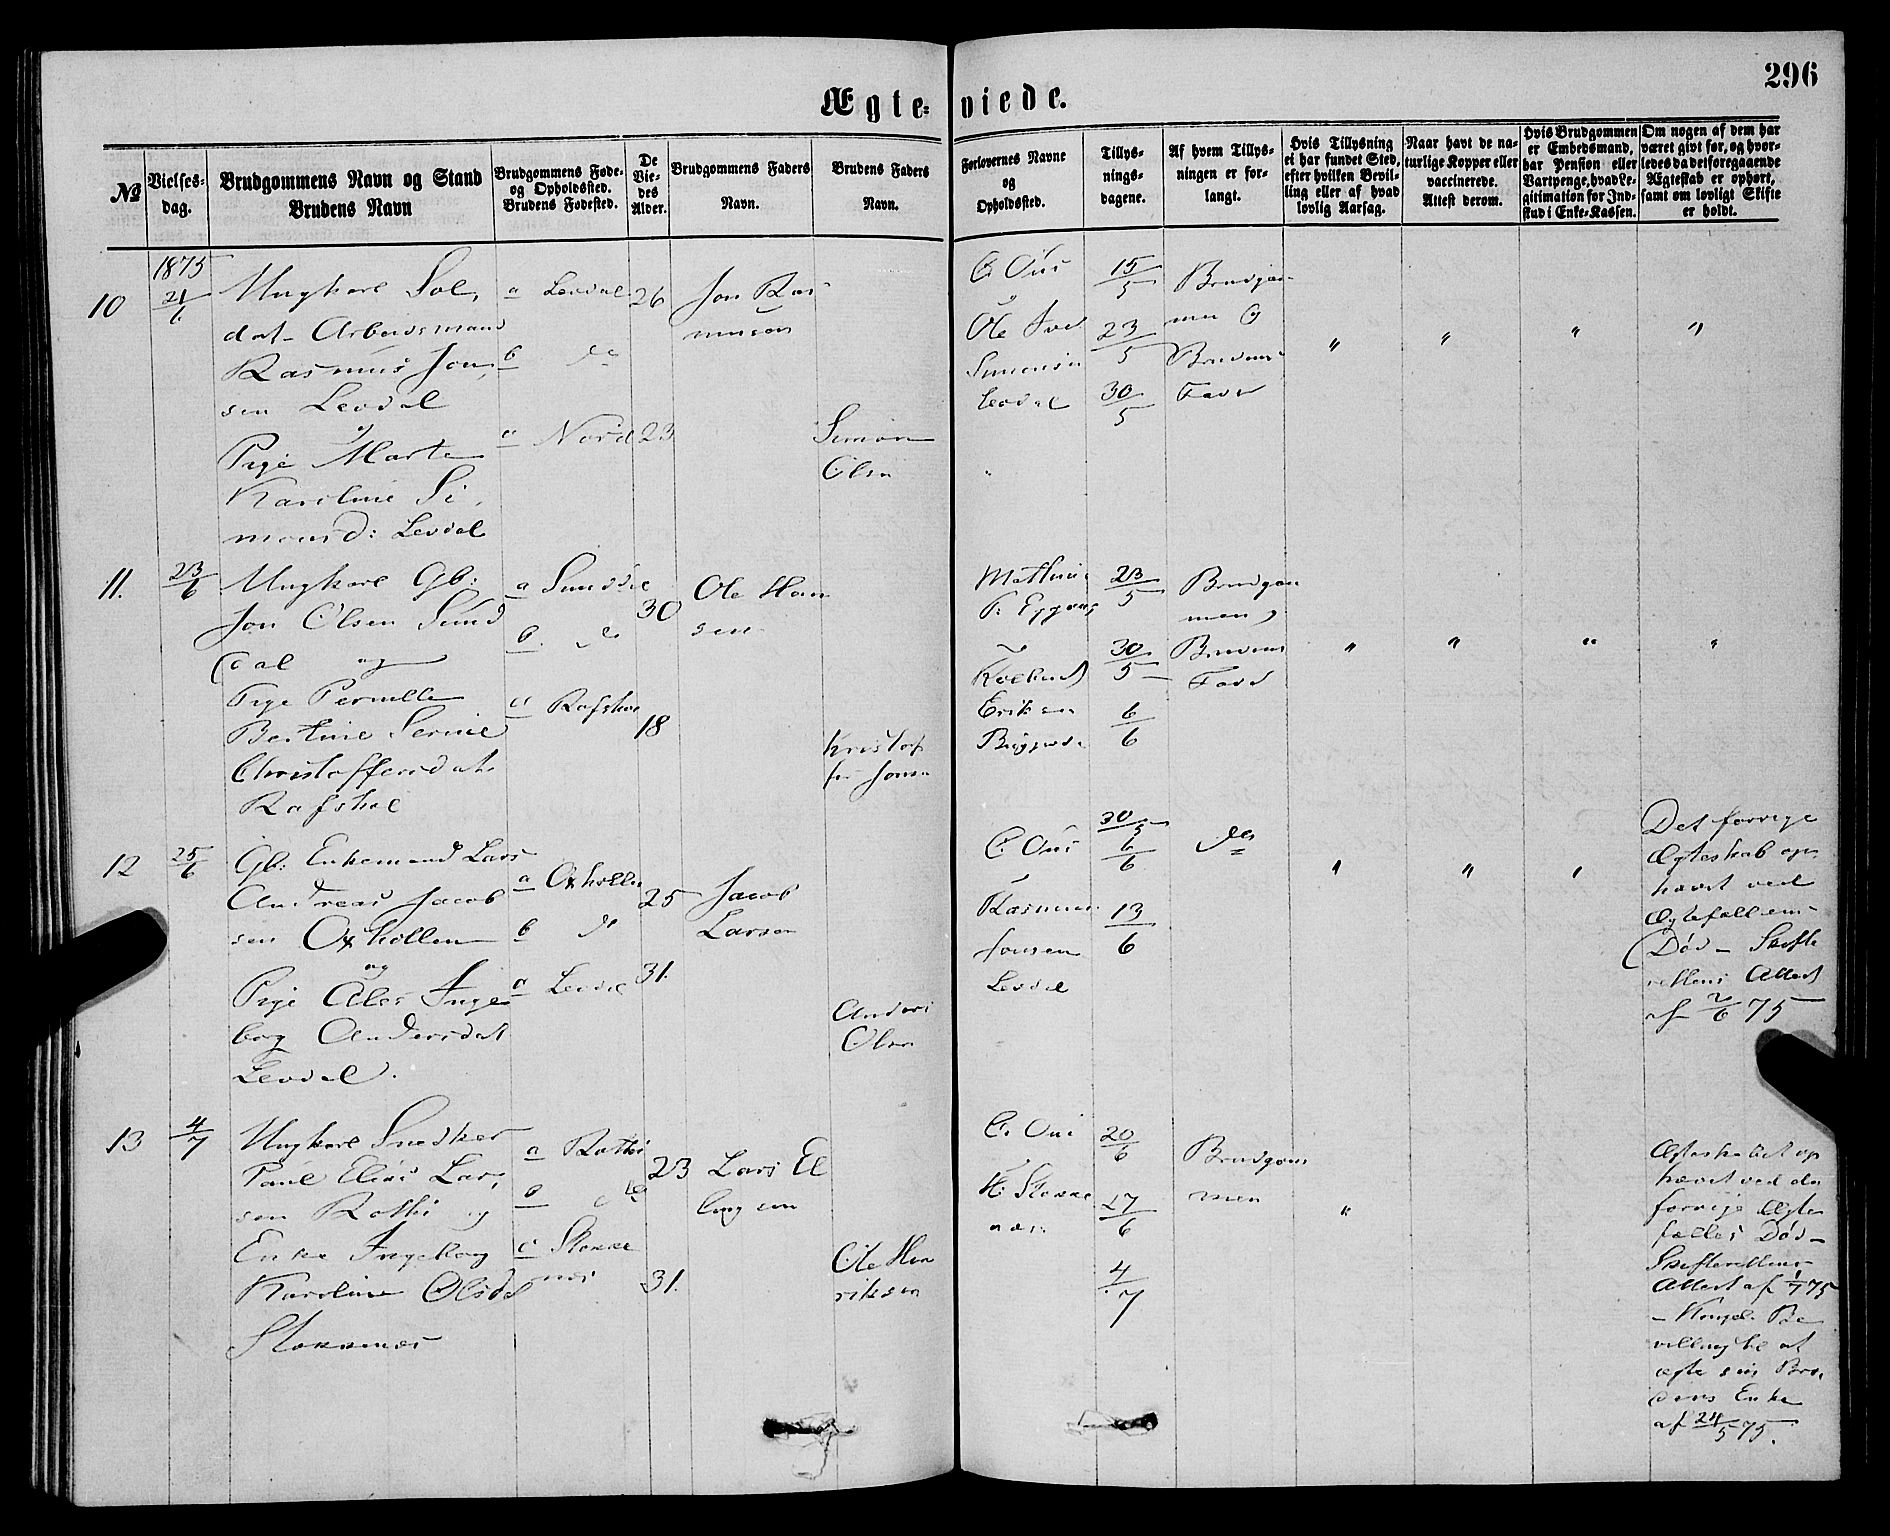 296
Ægte-viede.
№
Vielses-
dag.
Brudgommens Navn og Stand
Brudens Navn
Brudgommens Føde-
og Opholdssted.
Brudens Fødested.
De
Vie-
des
Alder.
Brudgommens Faders
Navn.
Brudens Faders
Navn.
Forlovernes Navne
og
Opholdssted.
Tillys-
nings-
dagene.
Af hvem Tillys-
ningen er for-
langt.
Hvis Tillysning
ei har fundet Sted,
efter hvilken Bevil-
ling eller af hvad
lovlig Aarsag.
Naar havt de na-
turlige Kopper eller
vaccinerede.
Attest derom.
Hvis Brudgommen
er Embedsmand,
har Pension eller
Vartpenge, hvad Le-
gitimation for Ind-
skud i Enke-Kassen.
Om nogen af dem har
været givt før, og hvor-
ledes da det foregaaende
Ægteskab er ophørt,
samt om lovligt Skifte
er holdt.
1875
10
21/6
Ungkarl Sol,
dat- Arbeidsmand
Rasmus Jon,
sen Levdal
Pige Marte
Karoline Si,
monsd: Levdal
a Levdal
b do
a Nord
26
23
Jon Ras-
mussen
Simon
Olsen
C. Ous
Ole Ferd
Simonsen
Levdal
15/5
23/5
30/5
Brudgom-
men og
Brudens
Fader
" " " "
11.
23/6
Ungkarl Gb:
Jon Olsen Sund
dal og
Pige Pernille
Bertine Serine
Christoffersdat
Rafshol
a Sunddal
b do
a Rafshol
30
18
Ole Han
sen
Kristof
fer Jonsen
Mathias
P. Eggen
Erik
23/5
30/5
6/6
Brudgom
men,
Brudens
Fader
" " " "
12
25/6
Gb: Enkemand Lars
Andreas Jacob
sen Oxhollen
og
Pige Ales Inge
borg Andersdat
Levdal.
a Oxhollen
b do
a Levdal
25
31.
Jacob
Larsen
Anders
Olsen
C. Ous
Rasmus
Jonsen
Levdal
30/5
6/6
13/6
do
" " "
Det forrige
Ægteskab op-
hævet ved
Ægtefællens
Død - Skifte
rettens Attest
af 2/6 75
13
4/7
Ungkarl Snedker
Paul Elias Lar,
sen og
Enke Ingeborg
Karoline Olsd
Stokkenes
a
b do
a Stokke
nes
23
31.
Lars El
lingsen
Ole Hen
riksen
C. Ous
H. Stokke
nes.
20/6
27/6
4/7
Brudgom
men
"
Ægteskabet op
hævet ved den
forrige Ægte
fælles Død -
Skifterettens
Attest af 1/7 75
- Kongel. Be
villing til at
ægte sin Bro,
ders Enke
af 24/5 75.